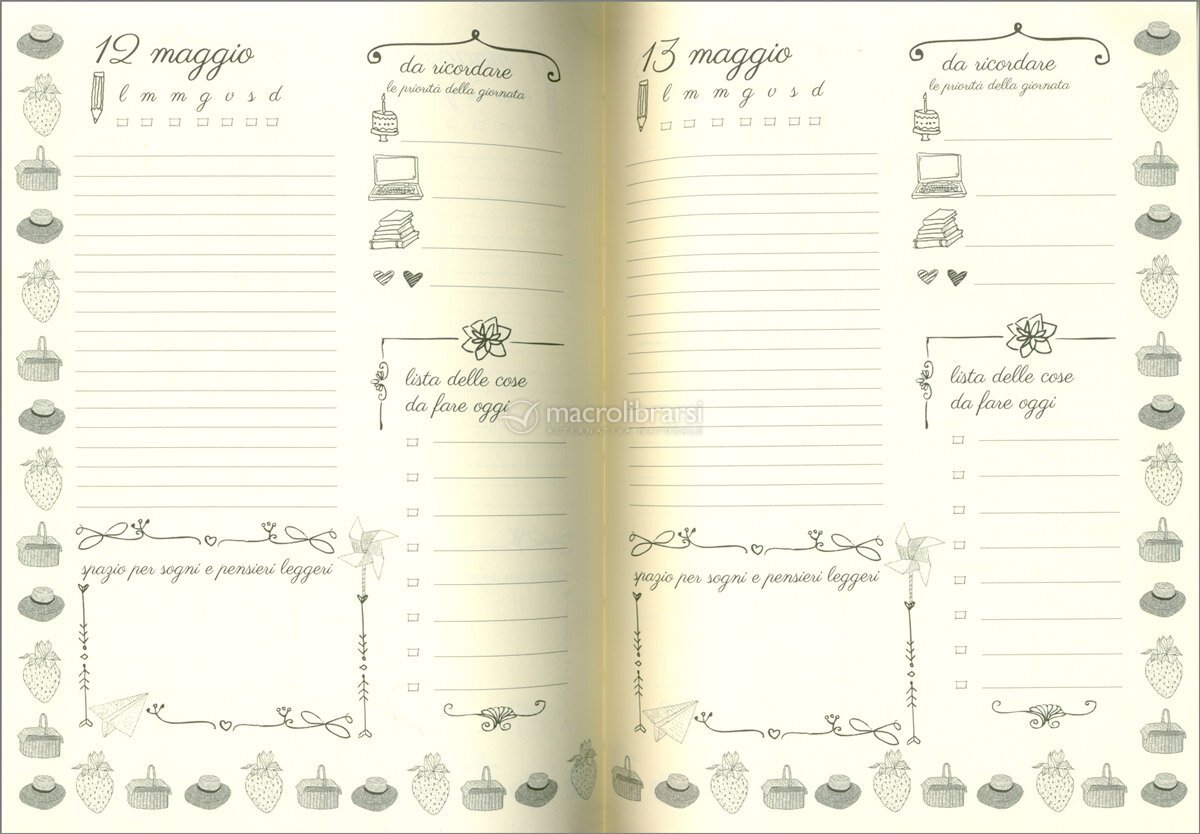 12 maggio
l m m g v s d
da ricordare
le priorità della giornata
lista delle cose
da fare oggi
spazio per sogni e pensieri leggeri
13 maggio
l m m g v s d
da ricordare
le priorità della giornata
lista delle cose
da fare oggi
spazio per sogni e pensieri leggeri
macrolibrarsi
ALTERNATIVA NATURALE